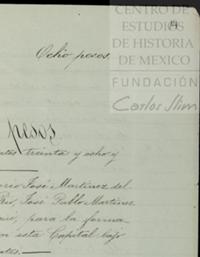 CENTRO DE
ESTUDIOS
DE HISTORIA
DE MEXICO
FUNDACIÓN
Carlos Slim
Ocho pesos,
pesos
treinta y ocho y
José Martinez del
Rio, José Pablo Martinez
para la forma
en esta Capital bajo